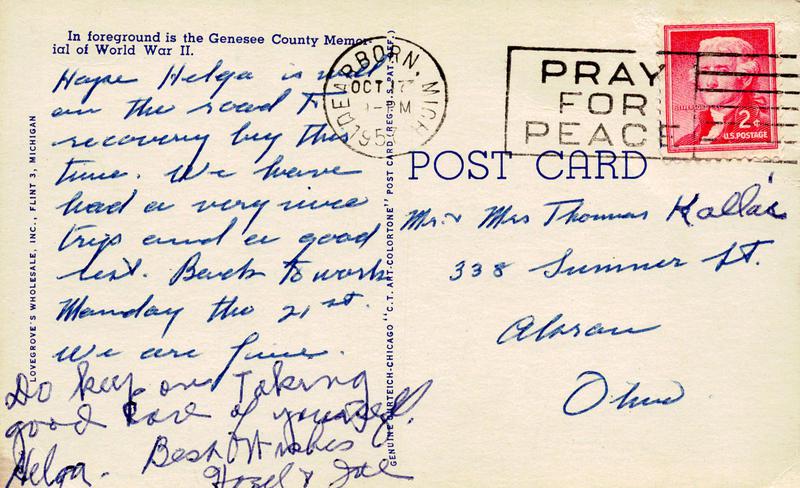 In foreground is the Genesee County Memor-
ial of World War II.
Hope Helga is well
on the road to
recovery by this
time. We have
had a very nice
trip and a good
rest. Back to work
Monday the 21 st.
We are fine.
Do keep on Taking
good care of yourself.
Helga. Best Wishes
Hazel & Joe
LOVEGROVE'S WHOLESALE, INC., FLINT 3, MICHIGAN
GENUINE CURTEICH-CHICAGO "C.T. ART-COLORTONE" POST CARD (REG. U.S. PAT. OFF.)
DEARBORN, MICH
OCT 17
1-PM
1957
PRAY
FOR
PEACE
2¢
U.S. POSTAGE
POST CARD
Mr. & Mrs Thomas Kallas
338 Summer St.
Akron
Ohio